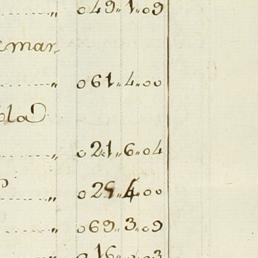 „ 049„1„09
eman
„ 061„4„00
bla
„ 021„6„04
„ 029„4„00
„ 069„3„09